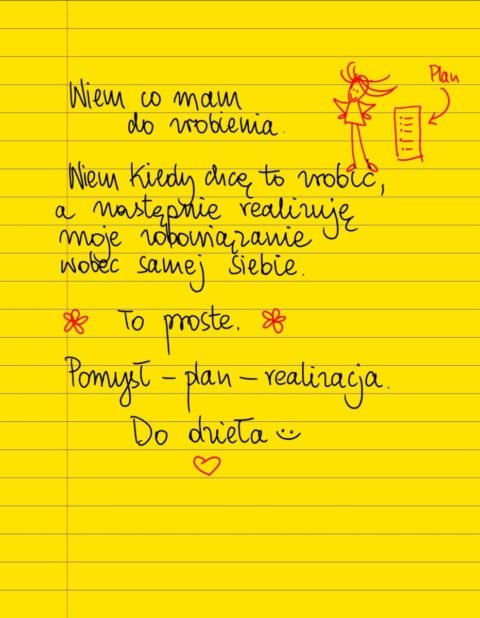 Wiem co mam
do zrobienia.
Plan
Wiem kiedy chcę to zrobić,
a następnie realizuję
moje zobowiązanie
wobec samej siebie.
To proste.
Pomysł – plan – realizacja.
Do dzieła